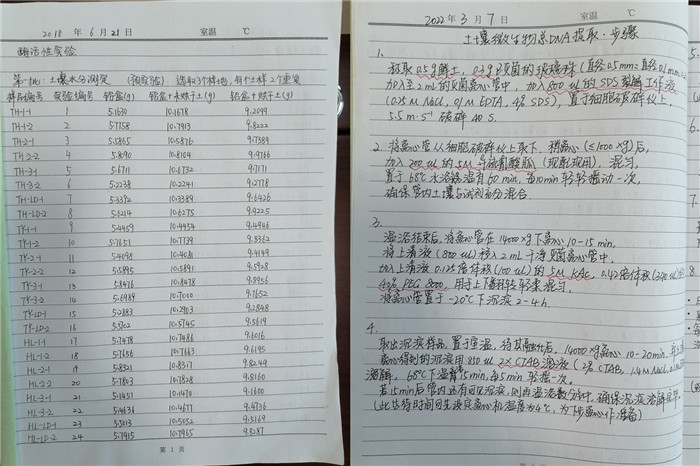 2018 年 6 月 21 日 室温 ℃
酶活性实验
第一批:土壤水分测定 (预实验) 选取3个样地,每个土样2个重复
样品编号 实验编号 铝盒(g) 铝盒+未烘干土(g) 铝盒+烘干土(g)
TH-1-1 1 5.1630 10.1678 9.2099
TH-1-2 2 5.7758 10.7913 9.8222
TH-2-1 3 5.5865 10.5876 9.7389
TH-2-2 4 5.8090 10.8104 9.9766
TH-3-1 5 5.6711 10.6732 9.7171
TH-3-2 6 5.2238 10.2241 9.2778
TH-LD-1 7 5.3382 10.3389 9.6426
TH-LD-2 8 5.6214 10.6275 9.9225
TY-1-1 9 5.4459 10.4454 9.4946
TY-1-2 10 5.7651 10.7739 9.8362
TY-2-1 11 5.4098 10.4081 9.4149
TY-2-2 12 5.5895 10.5891 9.5928
TY-3-1 13 5.8476 10.8478 9.8956
TY-3-2 14 5.6989 10.7000 9.7652
TY-LD-1 15 5.2883 10.2903 9.2848
TY-LD-2 16 5.5702 10.5745 9.5619
HL-1-1 17 5.7478 10.7486 9.6016
HL-1-2 18 5.7656 10.7663 9.6195
HL-2-1 19 5.8321 10.8317 9.8249
HL-2-2 20 5.7803 10.7828 9.8160
HL-3-1 21 5.1451 10.1470 9.1600
HL-3-2 22 5.4636 10.4677 9.4736
HL-LD-1 23 5.5013 10.5052 9.5169
HL-LD-2 24 5.7915 10.7965 9.8287
第 1 页
2022 年 3 月 7 日 室温 ℃
土壤微生物总DNA提取·步骤
1.
称取0.5g鲜土,0.3g灭菌的玻璃珠(直径0.5mm:直径0.1mm
加入至2mL的灭菌离心管中,加入800 uL的SDS裂解工作液
(0.25M NaCl, 0.1M EDTA, 4% SDS),置于细胞破碎仪上,
5.5 m·s⁻¹ 破碎 40 S.
2. 将离心管从细胞破碎仪上取下,稍离心(≤1000×g)后,
加入 200 uL 的 5M 异硫氰酸胍(现配现用),混匀,
置于68℃水浴锅温育60 min,每10min轻轻摇动一次,
确保管内土壤与试剂充分混合.
3.
温浴结束后,将离心管在14000×g下离心10-15 min,
将上清液(800 uL)移入2mL干净灭菌离心管中,
加入上清液0.125倍体积(100 uL)的5M KAc, 0.42倍体积
40% PEG 8000,用手上下翻转轻轻来混匀,
将离心管置于-20℃下沉淀2-4h.
4.
取出沉淀样品,置于室温,待其融化后,14000×g离心10-20min,
离心得到的沉淀用850 uL 2×CTAB溶液(2% CTAB, 1.4M NaCl,
溶解,68℃下温育15min,每5min轻摇一次.
若15min后管内还有可见沉淀,则再温浴数分钟,确保沉淀溶解完毕.
(此等待时间可先设定离心机温度为4℃,为下步离心作准备)